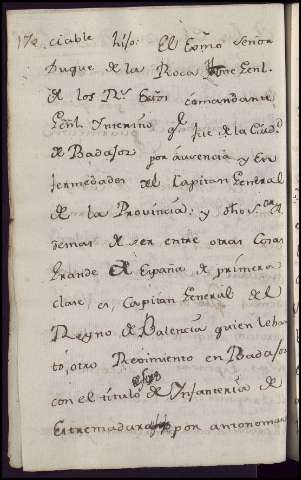 172 ciable hijo: El Exmo Señor
Duque de la Roca The Genl.
de los Rs. Exos comandante
Genl. Interino qe. fue de la Ciudd.
de Badajoz por ausencia y En
fermedades del Capitan General
de la Provincia: y dho sor. A
demas de ser entre otras Cosas
Grande de España de primera
clase es Capitan General del
Reyno de Balencia quien leban
tó, otro Regimiento en Badajoz
con el titulo de Infanteria de
Extremadura por antonomas